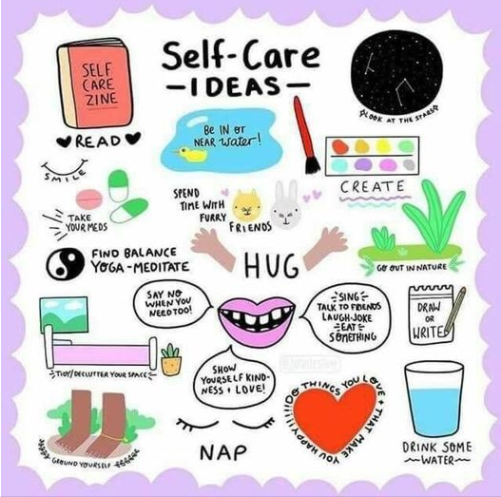 Self-Care
—IDEAS—
SELF
CARE
ZINE
♥ READ ♥
Be IN or
NEAR water!
LOOK AT THE STARS
SMILE
TAKE
YOUR MEDS
SPEND
TIME WITH
FURRY
FRIENDS
CREATE
FIND BALANCE
YOGA-MEDITATE
HUG
GO OUT IN NATURE
SAY NO
WHEN YOU
NEED TOO!
SING
TALK TO FRIENDS
LAUGH-JOKE
EAT
SOMETHING
DRAW
OR
WRITE
TIDY/DECLUTTER YOUR SPACE
SHOW
YOURSELF KIND-
NESS + LOVE!
DO THINGS YOU LOVE + THAT MAKE YOU HAPPY!!!!!
GROUND YOURSELF
NAP
DRINK SOME
~WATER~